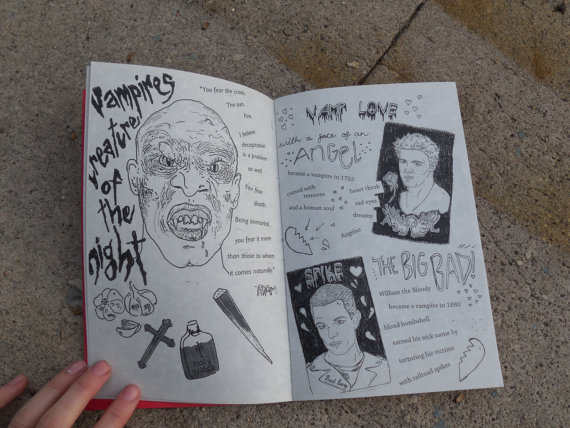 vampires
creatures
of
the
night
"You fear the cross.
The sun.
Fire.
I believe
decapitation
is a problem
as well.
You fear
death.
Being immortal,
you fear it more
than those to whom
it comes naturally."
holy
water
VAMP LOVE
with a face of an
ANGEL
became a vampire in 1753
cursed with
remorse
and a human soul
heart throb
sad eyes
dreamy
Angelus
SPIKE
Bad boy
THE BIG BAD!
William the Bloody
became a vampire in 1880
blond bombshell
earned his nick name by
torturing his victims
with railroad spikes